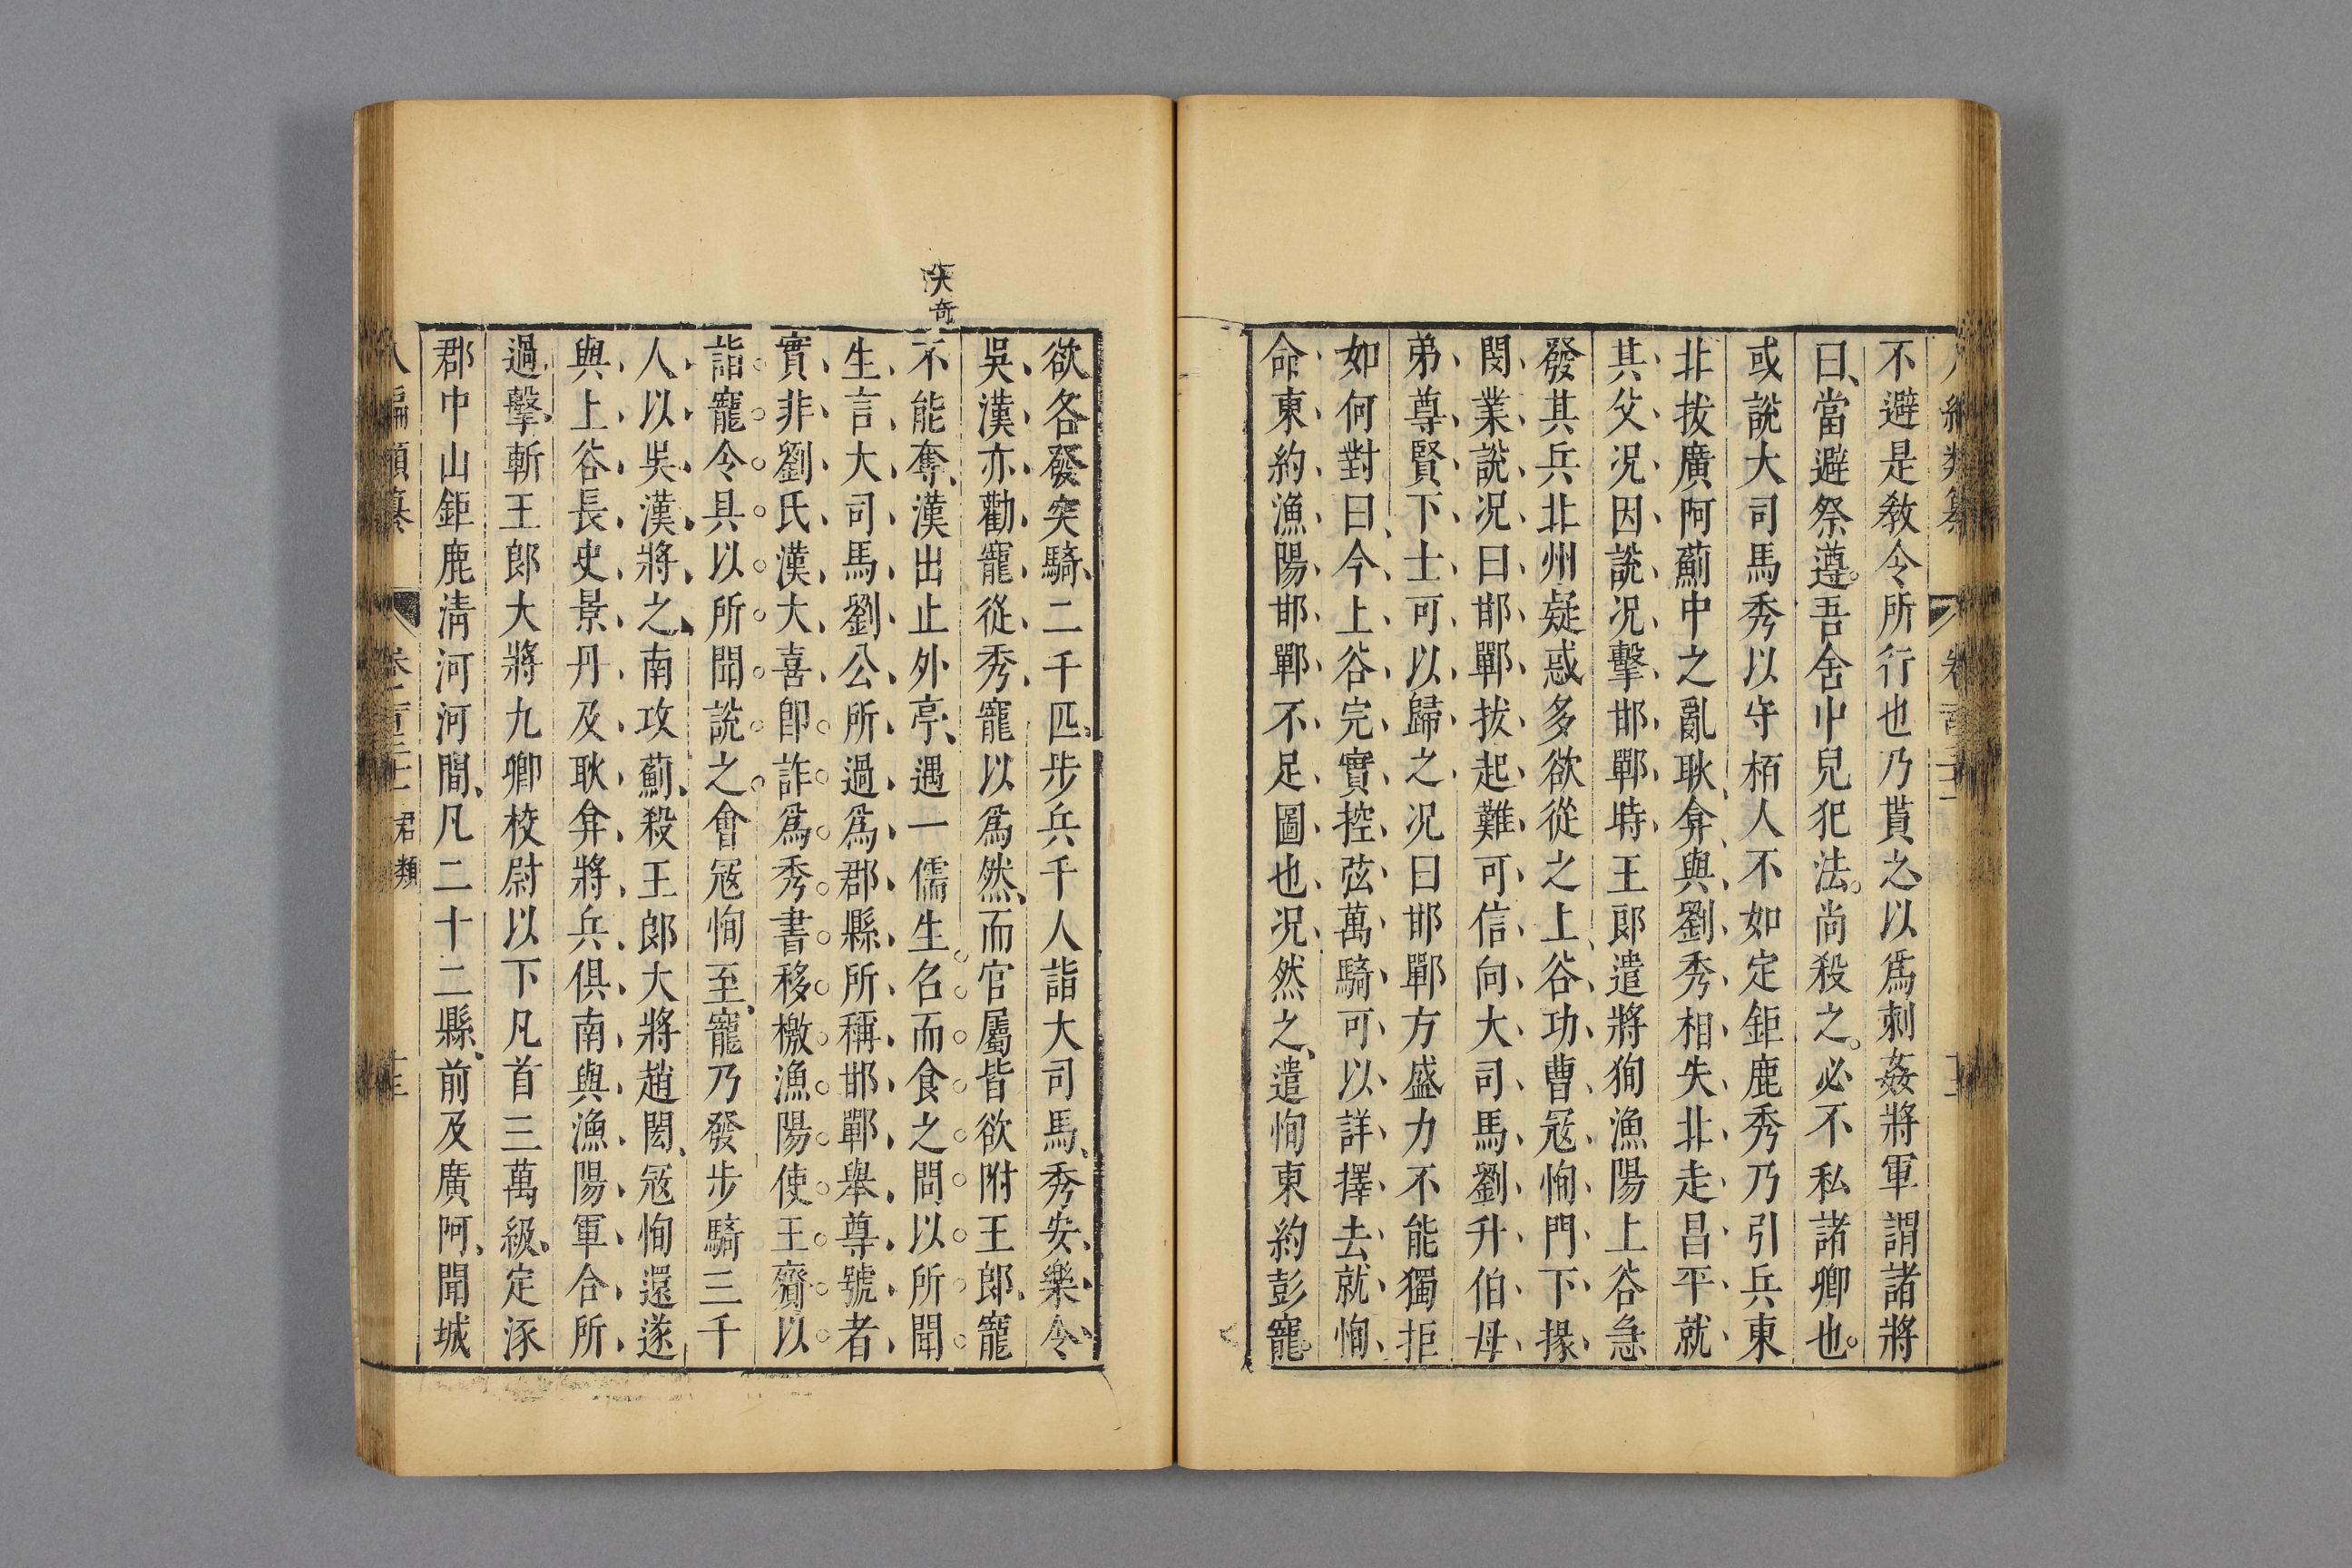 不避是敎令所行也乃貰之以爲刺姦將軍謂諸將
曰當避祭遵吾舍中兒犯法尚殺之必不私諸卿也
或說大司馬秀以守栢人不如定鉅鹿秀乃引兵東
北拔廣阿薊中之亂耿弇與劉秀相失北走昌平就
其父況因說況擊邯鄲時王郎遣將狥漁陽上谷急
發其兵北州疑惑多欲從之上谷功曹冦恂門下掾
閔業說況曰邯鄲拔起難可信向大司馬劉升伯母
弟尊賢下士可以歸之況曰邯鄲方盛力不能獨拒
如何對曰今上谷完實控弦萬騎可以詳擇去就恂
命東約漁陽邯鄲不足圖也況然之遣恂東約彭寵
欲各發突騎二千匹步兵千人詣大司馬秀安樂令
吳漢亦勸寵從秀寵以爲然而官屬皆欲附王郎寵
不能奪漢出止外亭遇一儒生名而食之問以所聞
生言大司馬劉公所過爲郡縣所稱邯鄲舉尊號者
實非劉氏漢大喜卽詐爲秀書移檄漁陽使王齎以
詣寵令具以所聞說之會冦恂至寵乃發步騎三千
人以吳漢將之南攻薊殺王郎大將趙閎冦恂還遂
與上谷長史景丹及耿弇將兵俱南與漁陽軍合所
過擊斬王郎大將九卿校尉以下凡首三萬級定涿
郡中山鉅鹿淸河河間凡二十二縣前及廣阿聞城
奇
君類